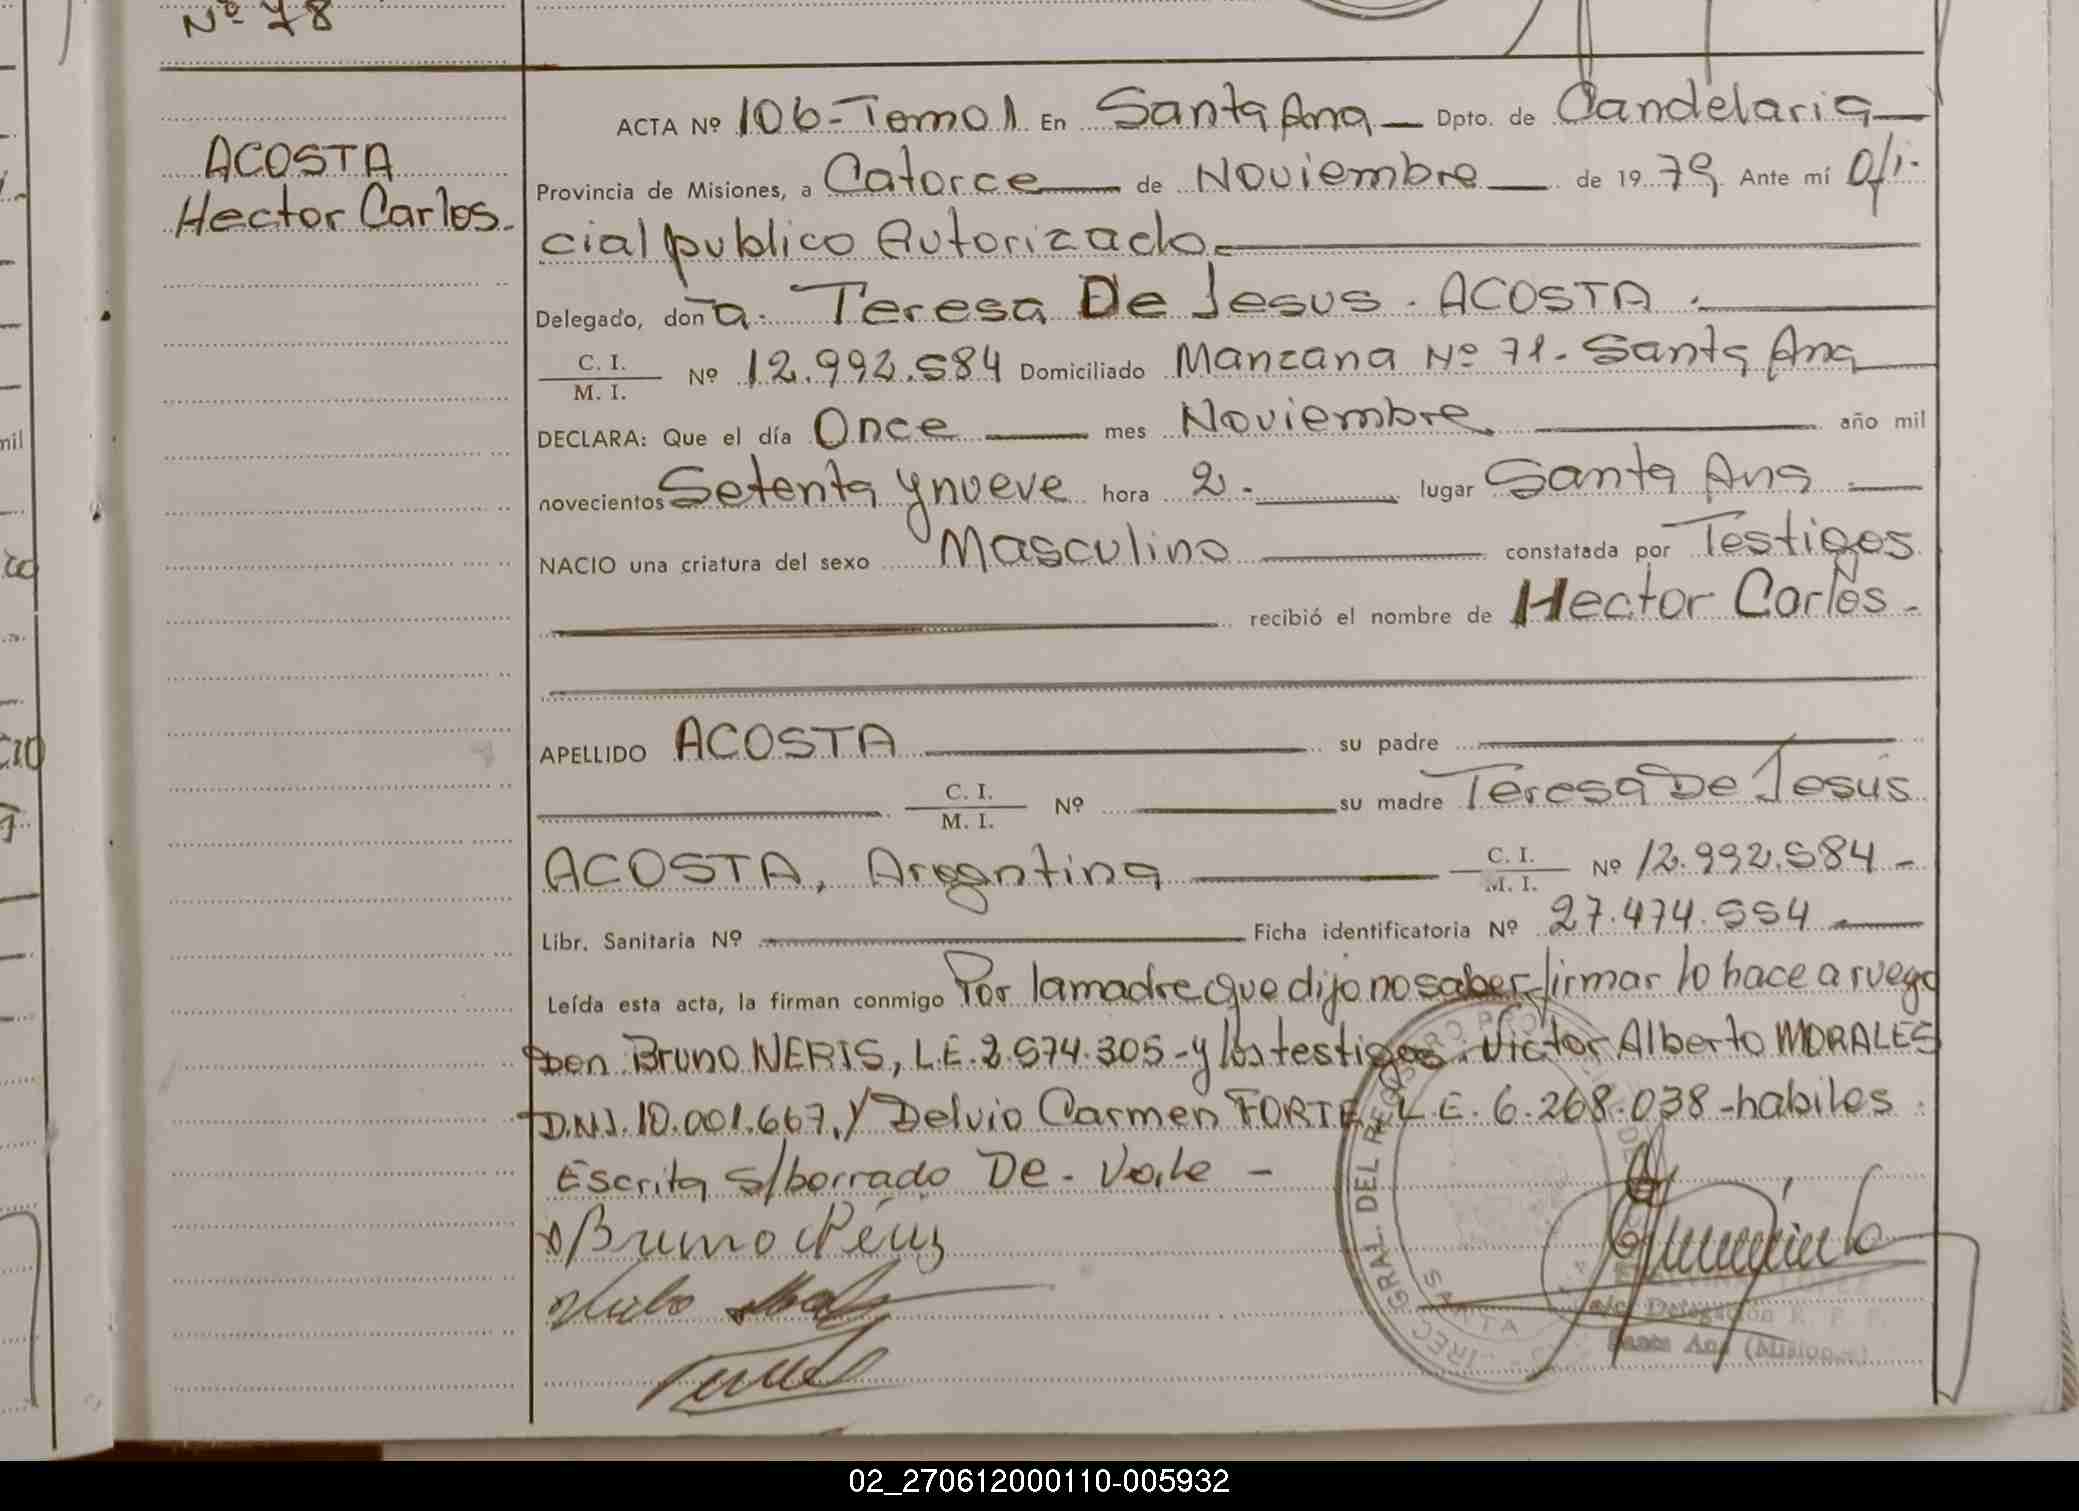 Nº 78
ACOSTA
Hector Carlos.
ACTA Nº 106-Tomo 1 En Santa Ana Dpto. de Candelaria
Provincia de Misiones, a Catorce de Noviembre de 1979 Ante mí Ofi-
cial publico Autorizado.
Delegado, doña. Teresa De Jesus. ACOSTA.
C. I.
M. I. Nº 12.992.584 Domiciliado Manzana Nº 71-Santa Ana
DECLARA: Que el día Once mes Noviembre. año mil
novecientos Setenta y nueve hora 2. lugar Santa Ana
NACIO una criatura del sexo Masculino constatada por Testigos
recibió el nombre de Hector Carlos.
APELLIDO ACOSTA su padre
C. I.
M. I. Nº su madre Teresa De Jesús
ACOSTA, Argentina C. I.
M. I. Nº 12.992.584-
Libr. Sanitaria Nº Ficha identificatoria Nº 27.474.554
Leída esta acta, la firman conmigo Por la madre que dijo no saber firmar lo hace a ruego
Don Bruno NERIS, L.E. 2.574.305-y los testigos. Victor Alberto MORALES
D.N.I. 10.001.667, y Delvio Carmen FORTE, L.E. 6.268.038-habiles.
Escrita s/borrado De-Vale-
Bruno
a/c. Delegación R. P. P.
Santa Ana (Misiones)
02_270612000110-005932